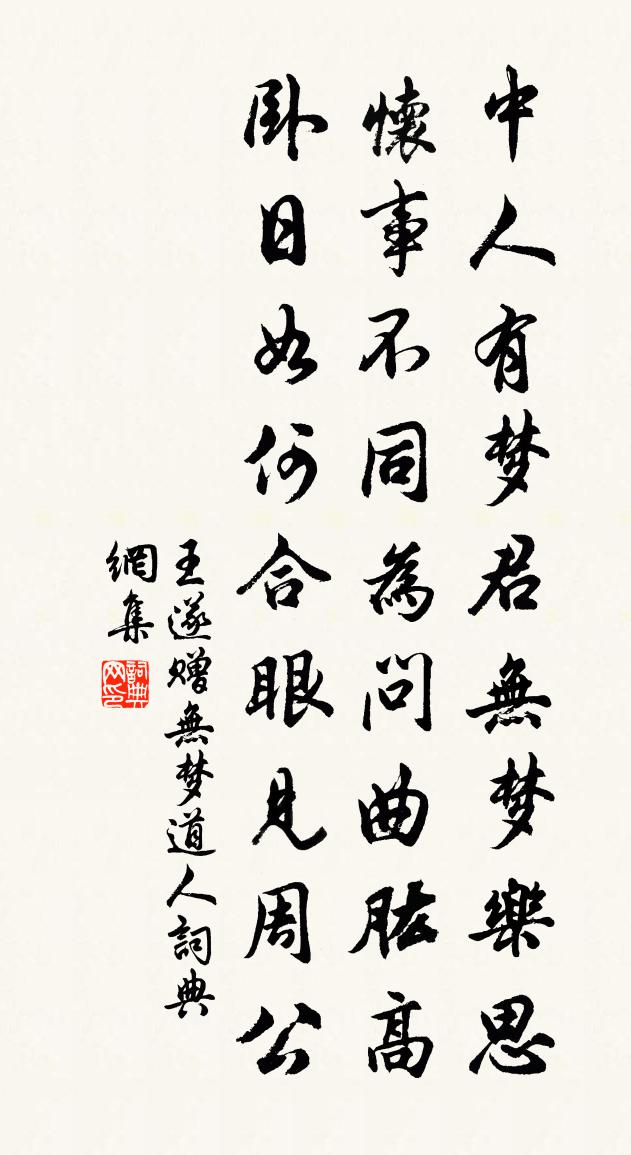 中人有梦君無梦樂思
懷事不同為問曲肱高
卧日如何合眼見周公
王遂贈無梦道人詞典
網集
詞典
网印